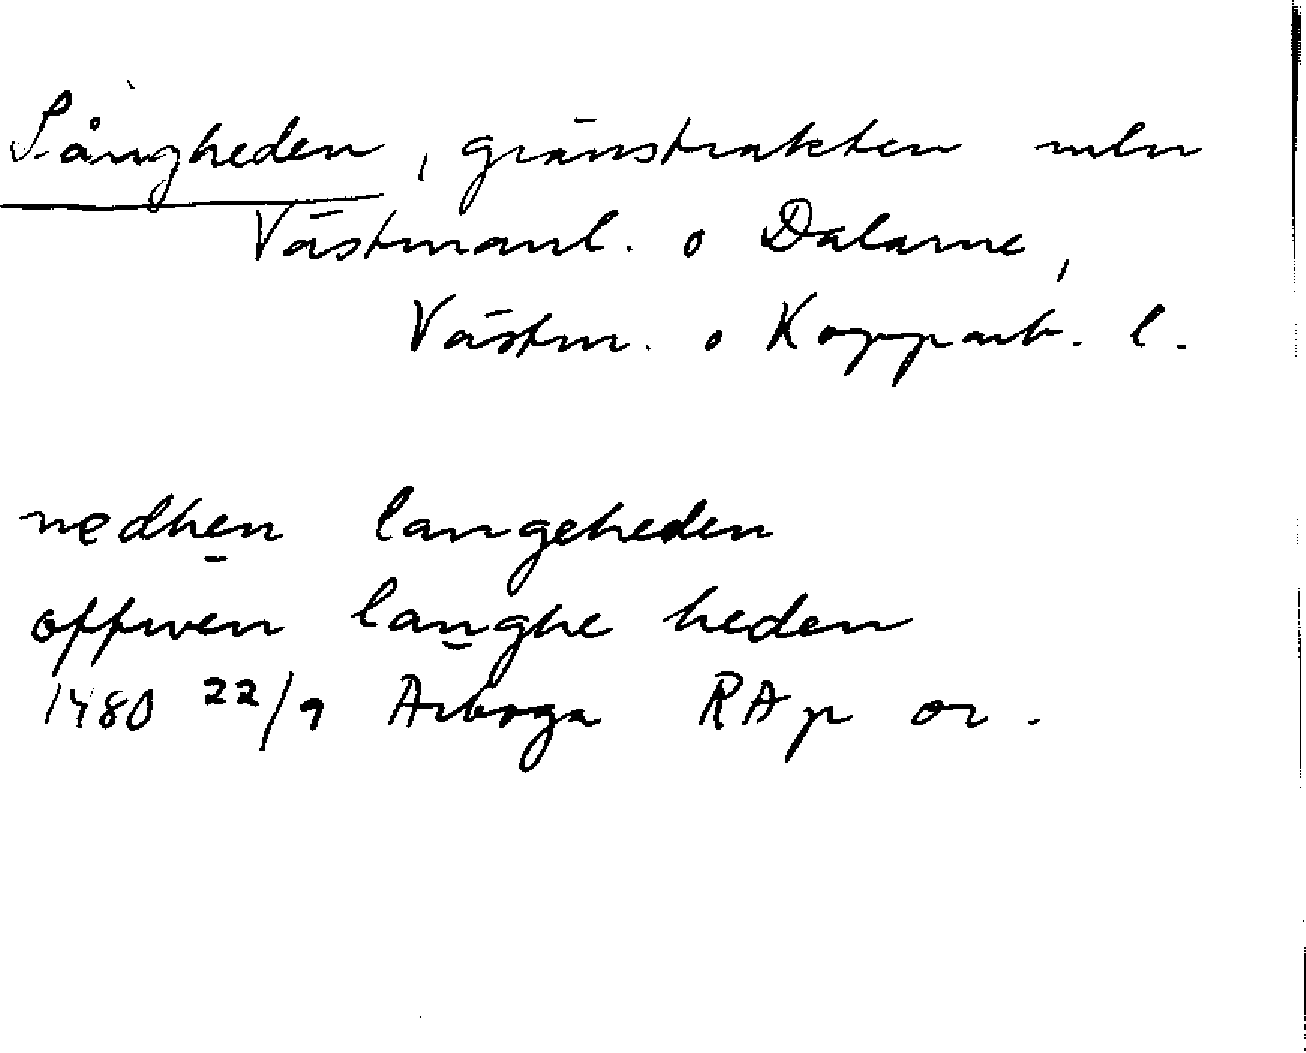 Långheden, gränstrakten mln
Västmanl. o Dalarne,
Västm. o Kopparb. l.
nedhen langeheden
offwen langhe heden
1480 22/9 Arboga RAp or.